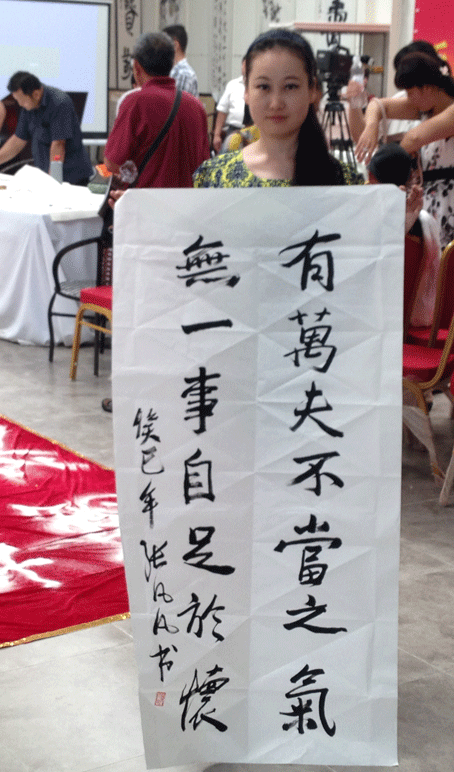 有萬夫不當之氣
無一事自足於懷
癸巳年 张凡凡书